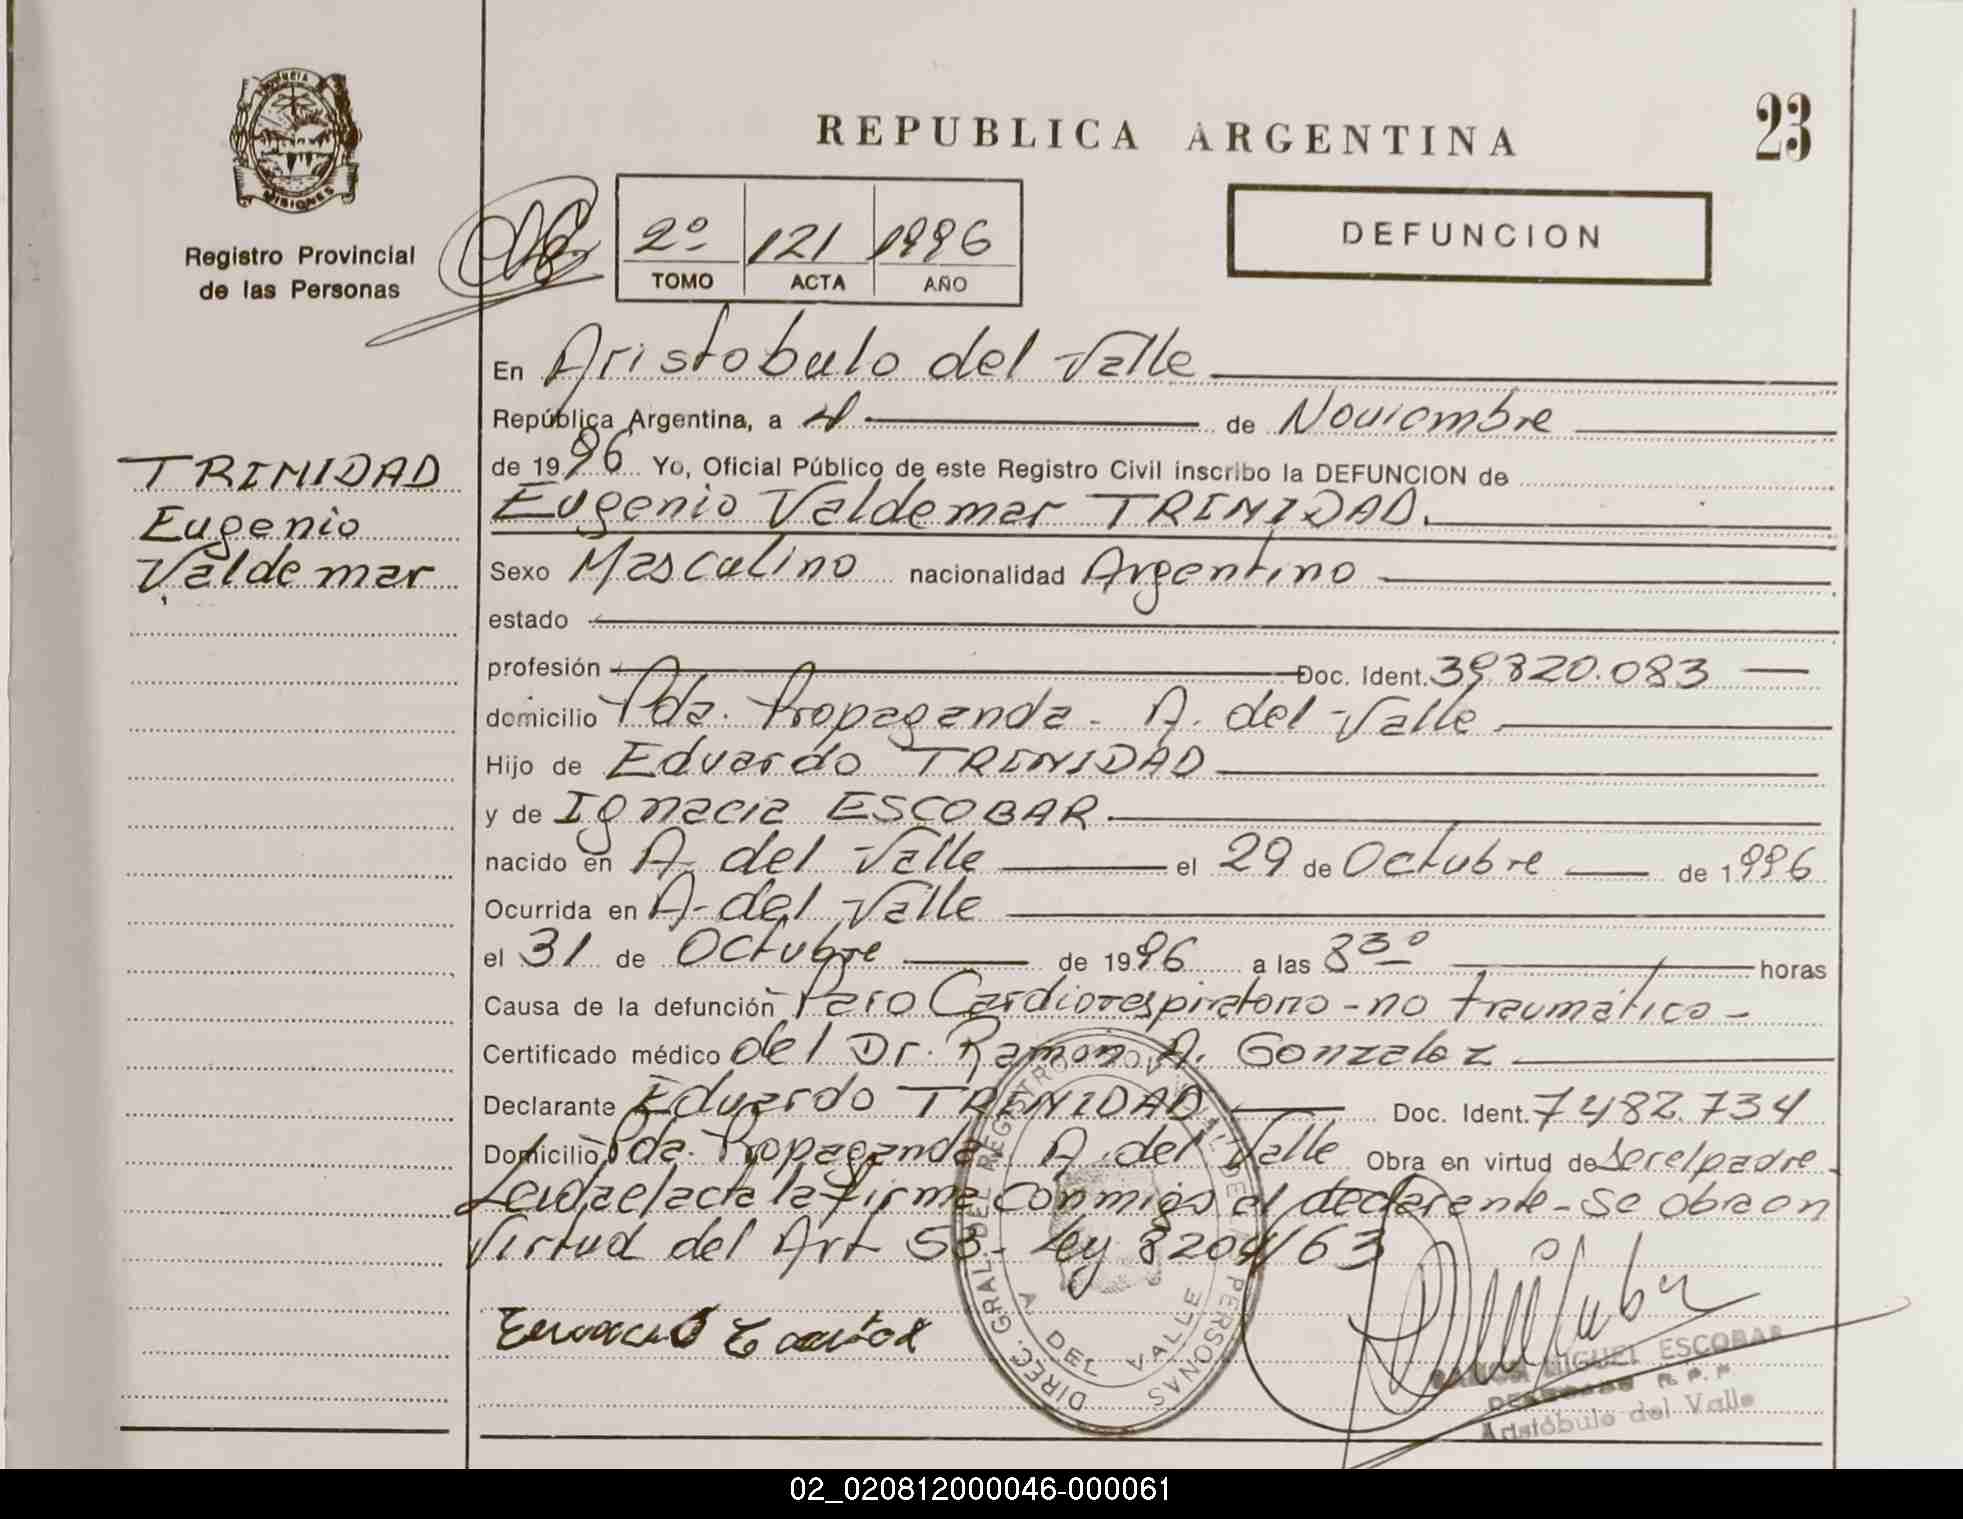 PROVINCIA DE
MISIONES
Registro Provincial
de las Personas
REPUBLICA ARGENTINA
23
2º 121 1996
TOMO ACTA AÑO
DEFUNCION
En Aristobulo del Valle
República Argentina, a 4 de Noviembre
de 1996 Yo, Oficial Público de este Registro Civil inscribo la DEFUNCION de
Eugenio Valdemar TRINIDAD.
TRINIDAD
Eugenio
Valdemar
Sexo Masculino nacionalidad Argentino
estado
profesión Doc. Ident. 39.820.083
domicilio Pda. Propaganda - A. del Valle
Hijo de Eduardo TRINIDAD
y de Ignacia ESCOBAR
nacido en A. del Valle el 29 de Octubre de 1996
Ocurrida en A. del Valle
el 31 de Octubre de 1996 a las 8 30 horas
Causa de la defunción Paro Cardiorespiratorio - no traumático -
Certificado médico del Dr. Ramon A. Gonzalez
Declarante Eduardo TRINIDAD Doc. Ident. 7482.734
Domicilio Pda. Propaganda A. del Valle Obra en virtud de ser el padre
Leida el acta la firma conmigo el declarante - se obra en
Virtud del Art 53 - Ley 8204/63
DIREC. GRAL. DEL REGISTRO PROVINCIAL DE LAS PERSONAS
A. DEL VALLE
RAMON MIGUEL ESCOBAR
R. P. P.
Aristóbulo del Valle
02_020812000046-000061